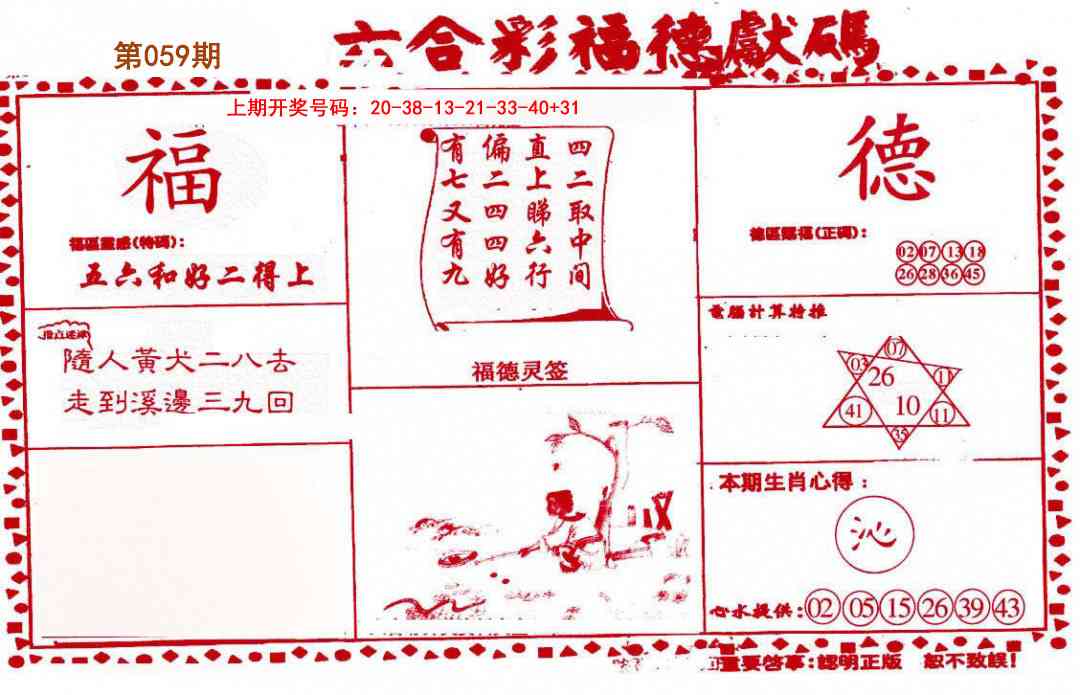 第059期
六合彩福德獻碼
上期开奖号码：20-38-13-21-33-40+31
福
福區靈感(特碼)：
五六和好二得上
隨人黃犬二八去
走到溪邊三九回
四二取中间
直上睇六行
偏二四四好
有七又有九
福德灵签
德
德區賜福(正碼)：
02 07 13 18
26 28 36 45
電腦計算特推
07
03 26 11
41 10 11
35
本期生肖心得：
沁
心水提供：02 05 15 26 39 43
重要啓事：認明正版 恕不致誤！